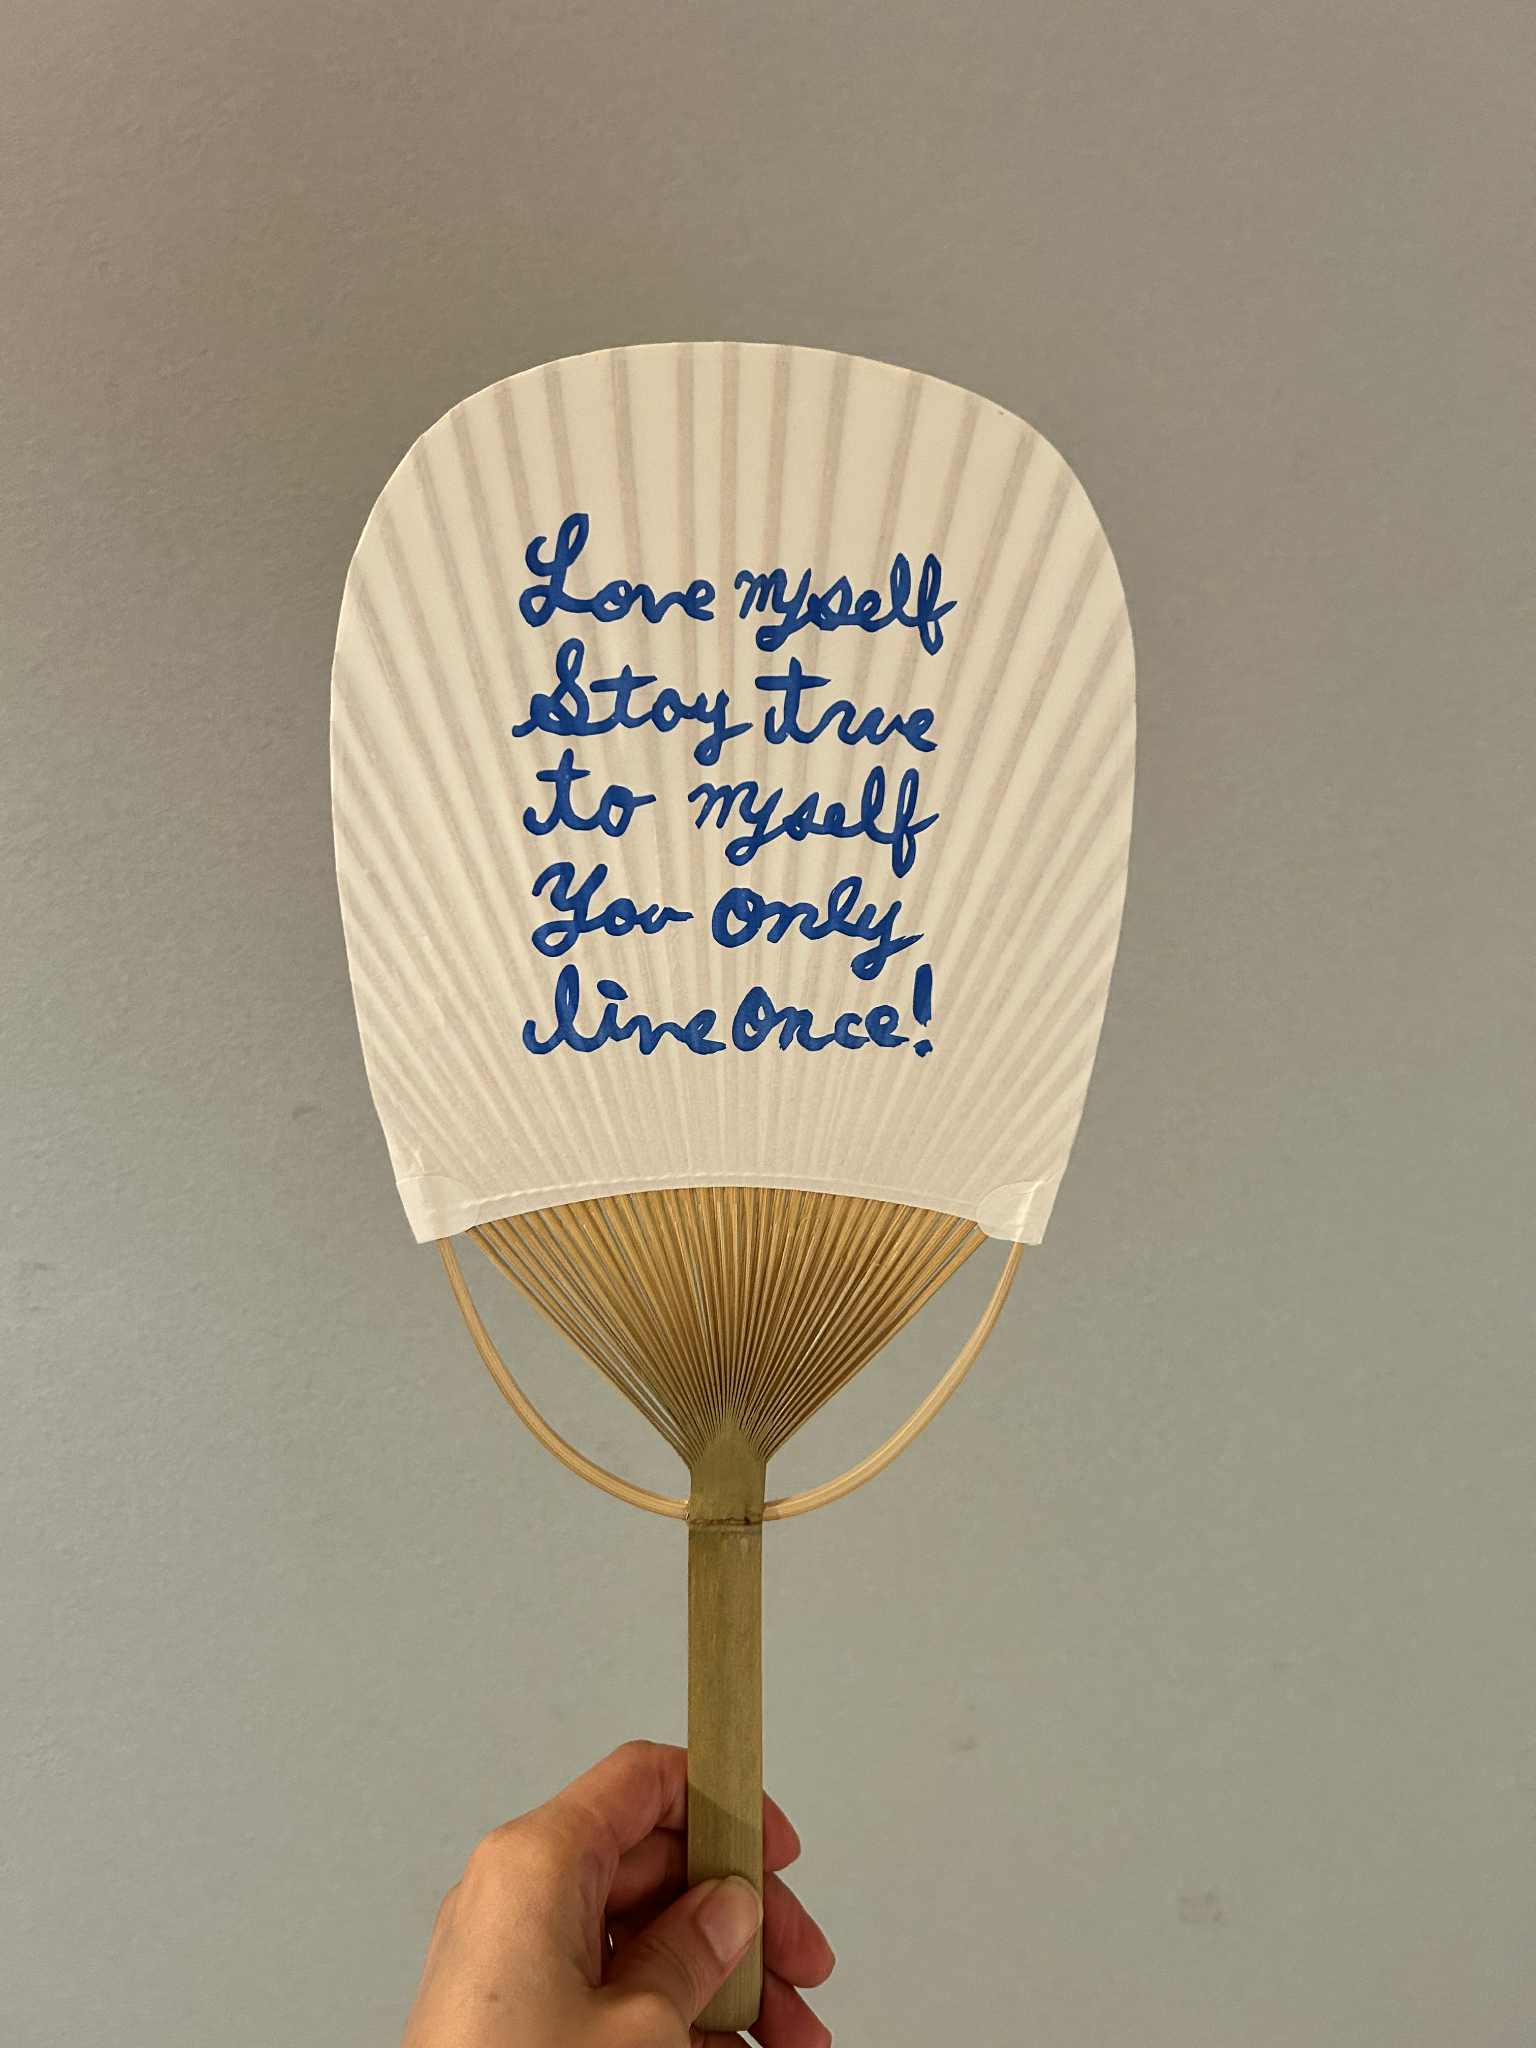 Love myself
Stay true
to myself
You only
live once!